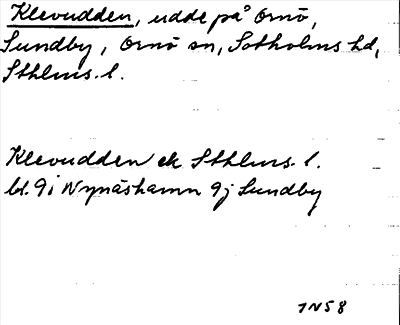 Klevudden, udde på Ornö,
Sundby, Ornö sn, Sotholms hd,
Sthlms. l.
Klevudden ek Sthlms. l.
bl. 9i Nynäshamn 9j Sundby
1N58